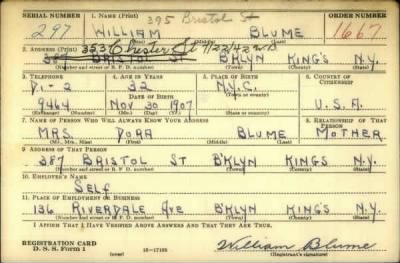 SERIAL NUMBER 1. NAME (Print) 395 Bristol St ORDER NUMBER
297 WILLIAM BLUME 1667
(First) (Middle) (Last)
2. ADDRESS (Print) 353 Chester St 7/22/42
BRISTOL ST B'KLYN KING'S N.Y.
(Number and street or R. F. D. number) (Town) (County) (State)
3. TELEPHONE 4. AGE IN YEARS 5. PLACE OF BIRTH 6. COUNTRY OF CITIZENSHIP
DI-2 32 N.Y.C.
DATE OF BIRTH (Town or county)
9464 Nov 30 1907 U.S.A.
(Mo.) (Day) (Yr.) (State or country)
7. NAME OF PERSON WHO WILL ALWAYS KNOW YOUR ADDRESS 8. RELATIONSHIP OF THAT PERSON
MRS. DORA BLUME MOTHER
(Mr., Mrs., Miss) (First) (Middle) (Last)
9. ADDRESS OF THAT PERSON
387 BRISTOL ST B'KLYN KINGS N.Y.
(Number and street or R. F. D. number) (Town) (County) (State)
10. EMPLOYER'S NAME
SELF
11. PLACE OF EMPLOYMENT OR BUSINESS
136 RIVERDALE AVE B'KLYN KING'S N.Y.
(Number and street or R. F. D. number) (Town) (County) (State)
I AFFIRM THAT I HAVE VERIFIED ABOVE ANSWERS AND THAT THEY ARE TRUE.
REGISTRATION CARD
D. S. S. Form 1 (over) 16-17105 William Blume
(Registrant's signature)